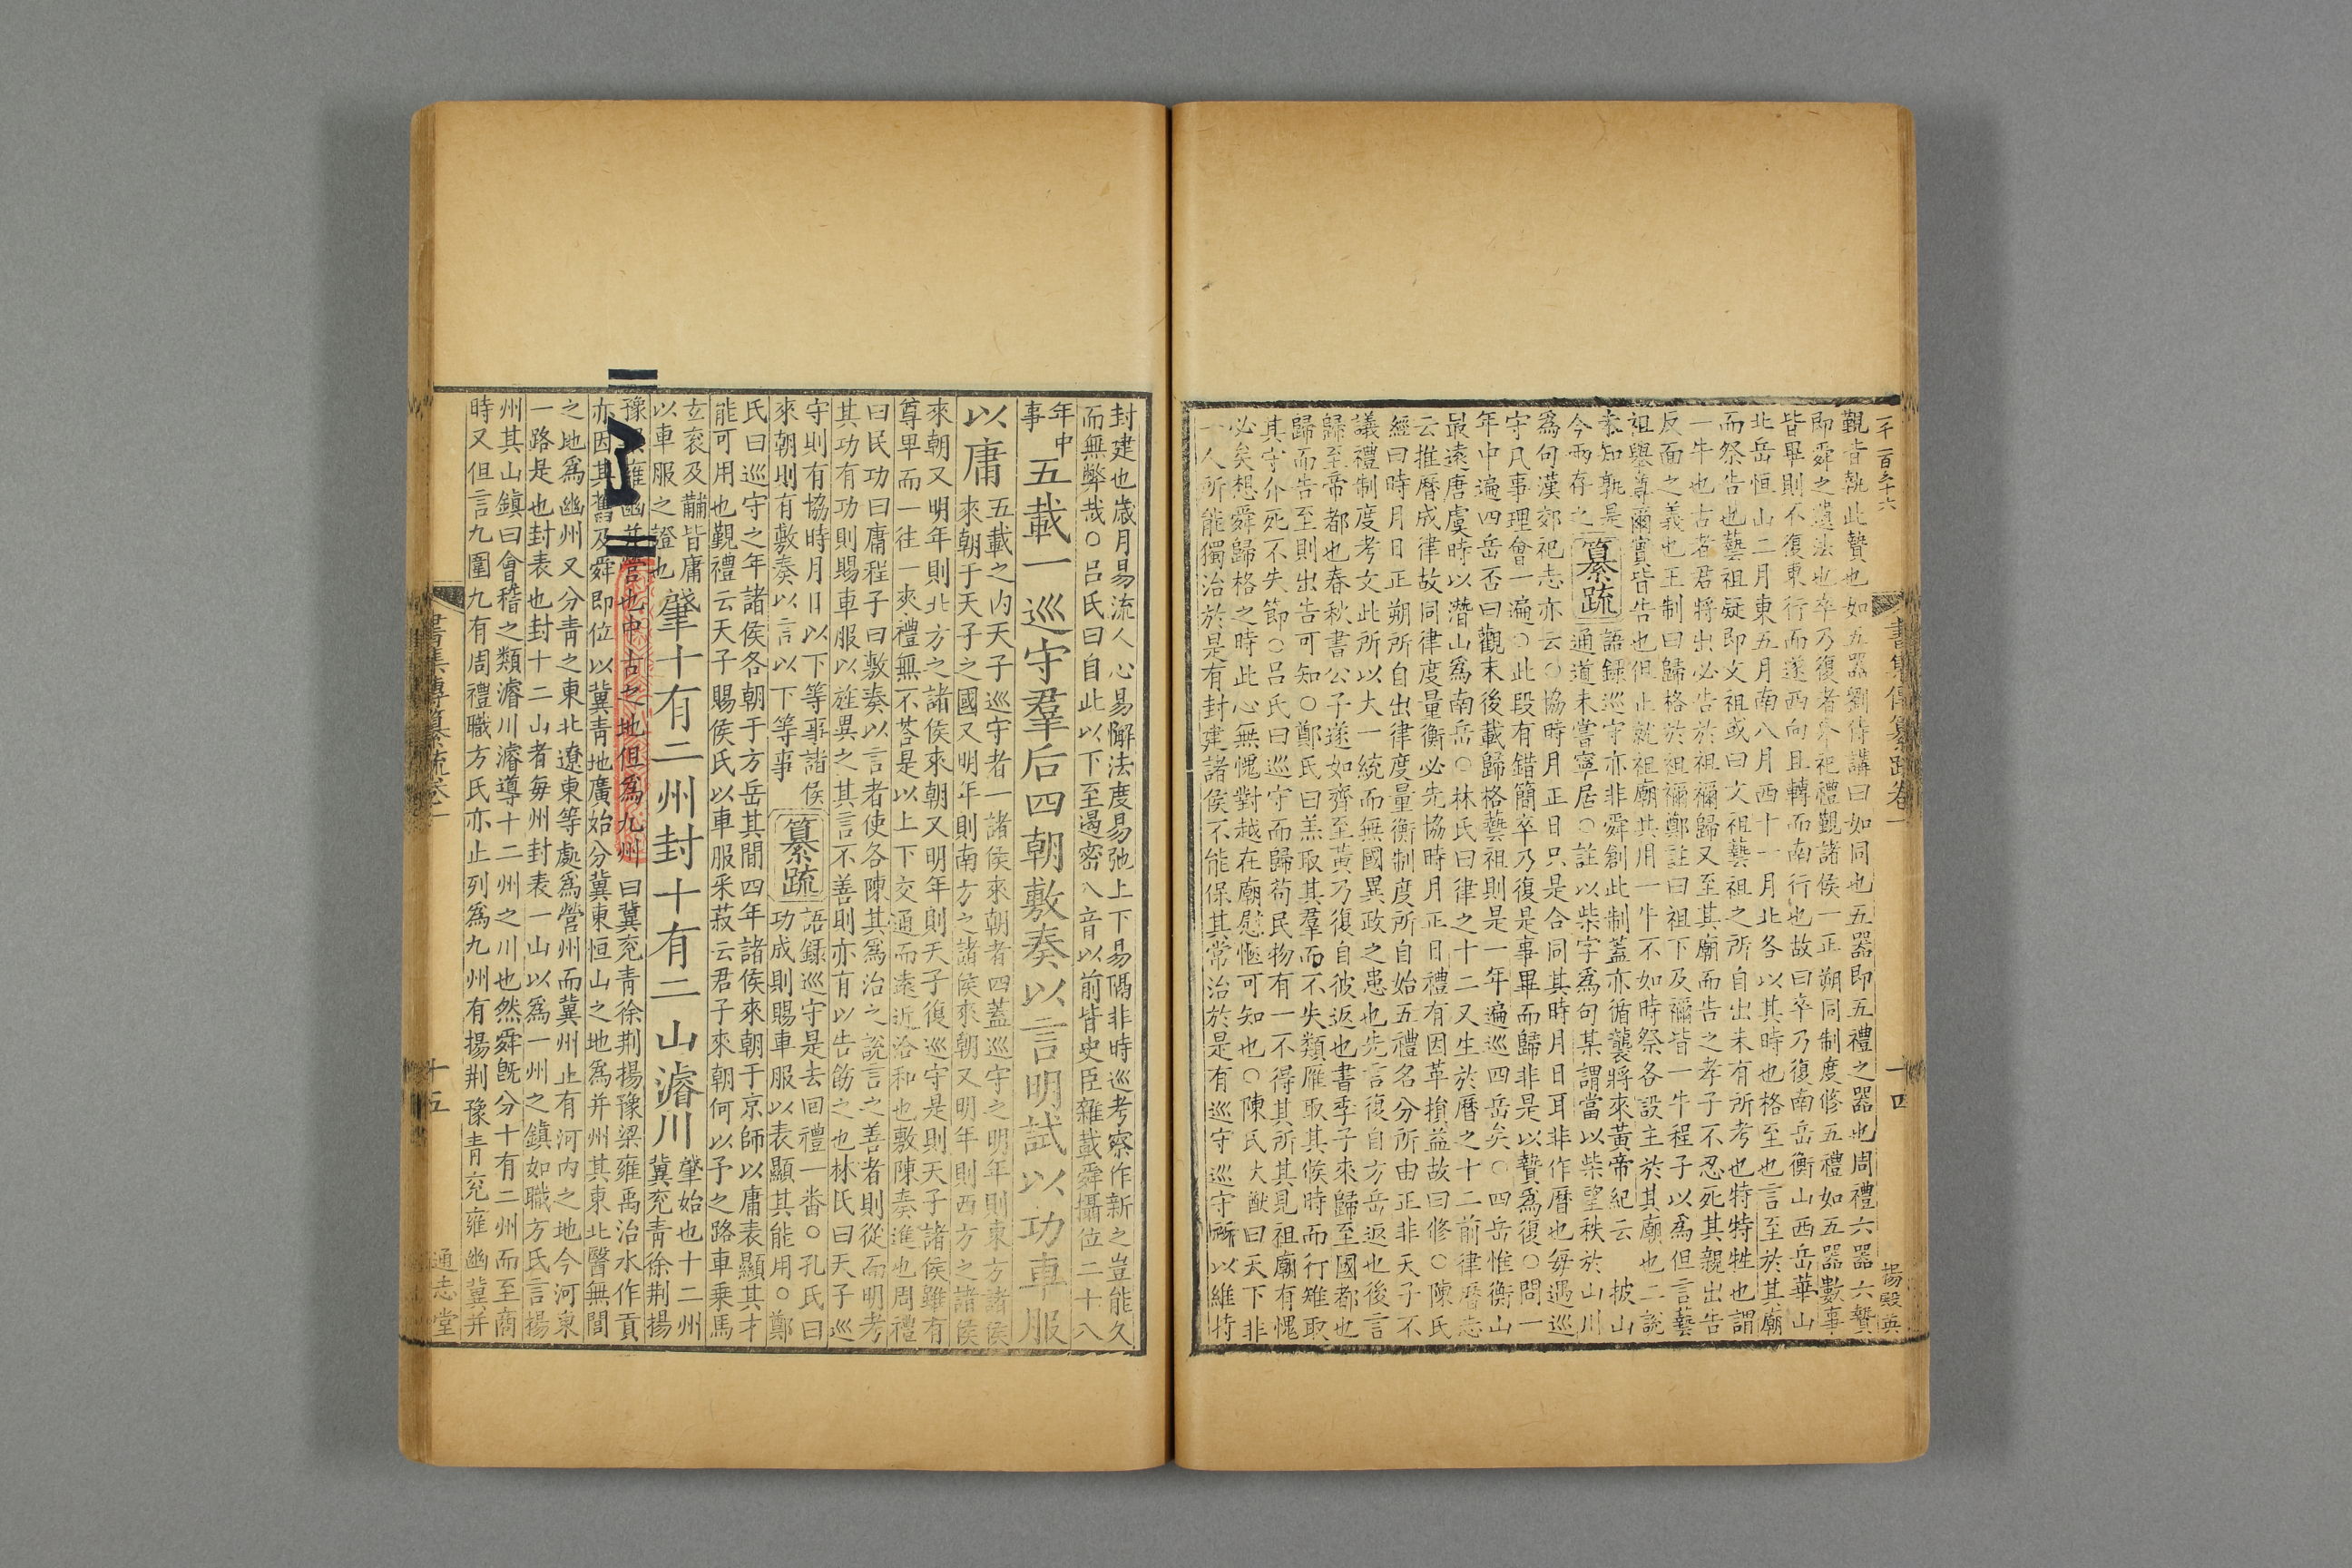 書集傳纂疏卷一
十四
覲皆執此贄也如五器劉侍講曰如同也五器即五禮之器也周禮六器六贄
即舜之遺法也卒乃復者舉祀禮覲諸侯一正朔同制度修五禮如五器數事
皆畢則不復東行而遂西向且轉而南行也故曰卒乃復南岳衡山西岳華山
北岳恒山二月東五月南八月西十一月北各以其時也格至也言至於其廟
而祭告也藝祖疑即文祖或曰文祖藝祖之所自出未有所考也特特牲也謂
一牛也古者君將出必告於祖禰歸又至其廟而告之孝子不忍死其親出告
反面之義也王制曰歸格於祖禰鄭註曰祖下及禰皆一牛程子以為但言藝
祖舉尊爾實皆告也但止就祖廟其用一牛不如時祭各設主於其廟也二說
未知孰是
今兩存之
纂疏
語錄巡守亦非舜創此制蓋亦循襲將來黃帝紀云披山
通道未嘗寧居○註以柴字為句某謂當以柴望秩於山川
為句漢郊祀志亦云○協時月正日只是合同其時月日耳非作曆也每遇巡
守凡事理會一遍○此段有錯簡卒乃復是事畢而歸非是以贄為復○問一
年中遍四岳否曰觀末後載歸格藝祖則是一年遍巡四岳矣○四岳惟衡山
最遠唐虞時以潛山為南岳○林氏曰律之十二又生於曆之十二前律曆志
云推曆成律故同律度量衡必先協時月正日禮有因革損益故曰修○陳氏
經曰時月日正朔所自出律度量衡制度所自始五禮名分所由正非天子不
議禮制度考文此所以大一統而無國異政之患也先言復自方岳返也後言
歸至帝都也春秋書公子遂如齊至黃乃復自彼返也書季子來歸至國都也
歸而告至則出告可知○鄭氏曰羔取其羣而不失類雁取其候時而行雉取
其守介死不失節○呂氏曰巡守而歸苟民物有一不得其所其見祖廟有愧
必矣想舜歸格之時此心無愧對越在廟慰愜可知也○陳氏大猷曰天下非
一人所能獨治於是有封建諸侯不能保其常治於是有巡守巡守所以維持
封建也歲月易流人心易懈法度易弛上下易隔非時巡考察作新之豈能久
而無弊哉○呂氏曰自此以下至遏密八音以前皆史臣雜載舜攝位二十八
年中
事
五載一巡守羣后四朝敷奏以言明試以功車服
以庸
五載之內天子巡守者一諸侯來朝者四蓋巡守之明年則東方諸侯
來朝于天子之國又明年則南方之諸侯來朝又明年則西方之諸侯
來朝又明年則北方之諸侯來朝又明年則天子復巡守是則天子諸侯雖有
尊卑而一往一來禮無不答是以上下交通而遠近洽和也敷陳奏進也周禮
曰民功曰庸程子曰敷奏以言者使各陳其為治之說言之善者則從而明考
其功有功則賜車服以旌異之其言不善則亦有以告飭之也林氏曰天子巡
守則有協時月日以下等事諸侯
來朝則有敷奏以言以下等事
纂疏
語錄巡守是去回禮一番○孔氏曰
功成則賜車服以表顯其能用○鄭
氏曰巡守之年諸侯各朝于方岳其間四年諸侯來朝于京師以庸表顯其才
能可用也覲禮云天子賜侯氏以車服采菽云君子來朝何以予之路車乘馬
玄袞及黼皆庸
以車服之證也
肇十有二州封十有二山濬川
肇始也十二州
冀兗青徐荆揚
豫梁雍幽并營也中古之地但為九州曰冀兗青徐荆揚豫梁雍禹治水作貢
亦因其舊及舜即位以冀青地廣始分冀東恒山之地為并州其東北醫無閭
之地為幽州又分青之東北遼東等處為營州而冀州止有河內之地今河東
一路是也封表也封十二山者每州封表一山以為一州之鎮如職方氏言揚
州其山鎮曰會稽之類濬川濬導十二州之川也然舜既分十有二州而至商
時又但言九圍九有周禮職方氏亦止列為九州有揚荆豫青兗雍幽冀并
書集傳纂疏卷一
十五
通志堂